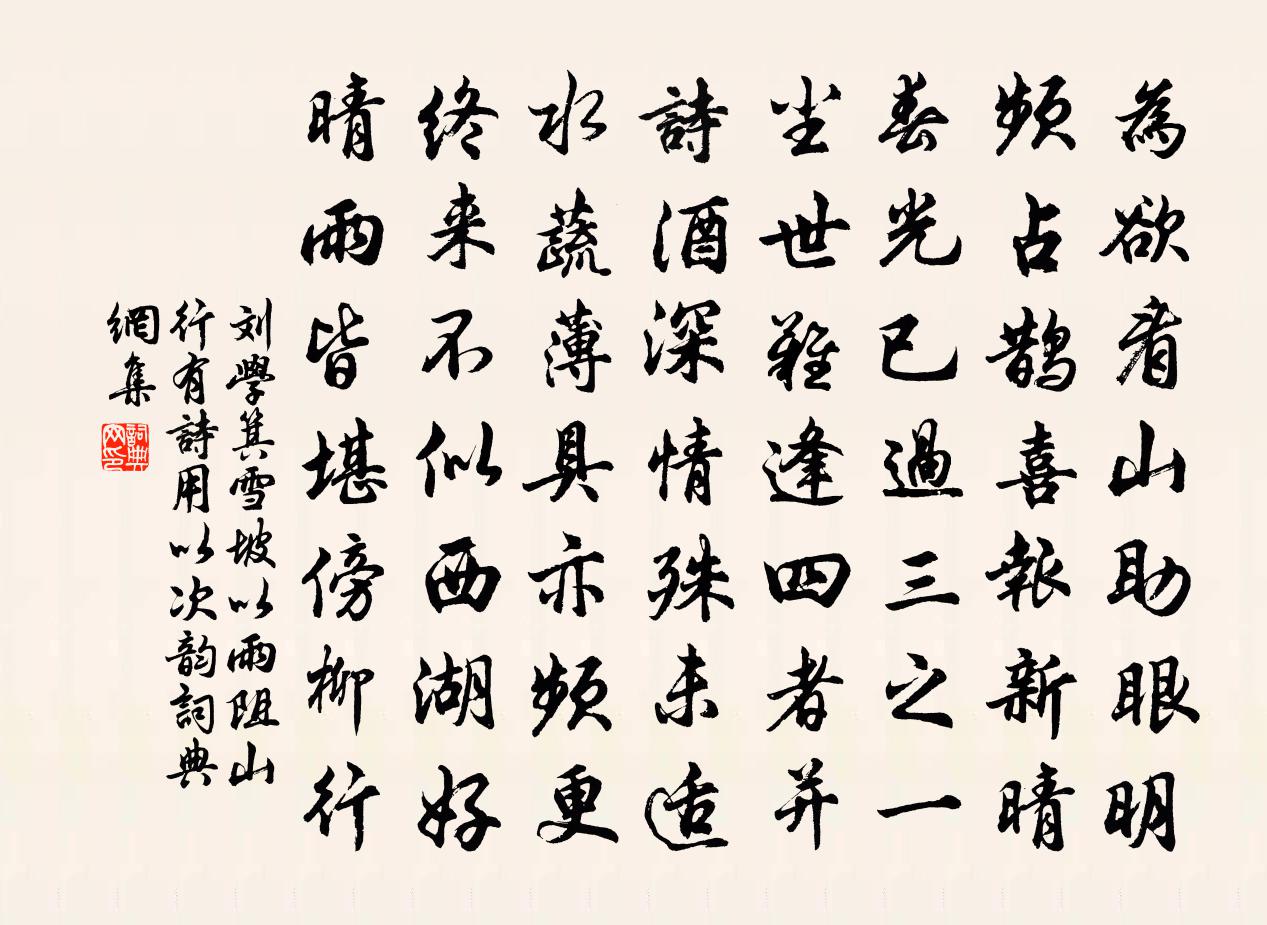 為欲看山助眼明
頻占鹊喜報新晴
春光已過三之一
尘世難逢四者并
詩酒深情殊未适
水蔬薄具亦頻更
终来不似西湖好
晴雨皆堪傍柳行
刘學箕雪坡以雨阻山
行有詩用以次韵詞典
網集
詞典
网印